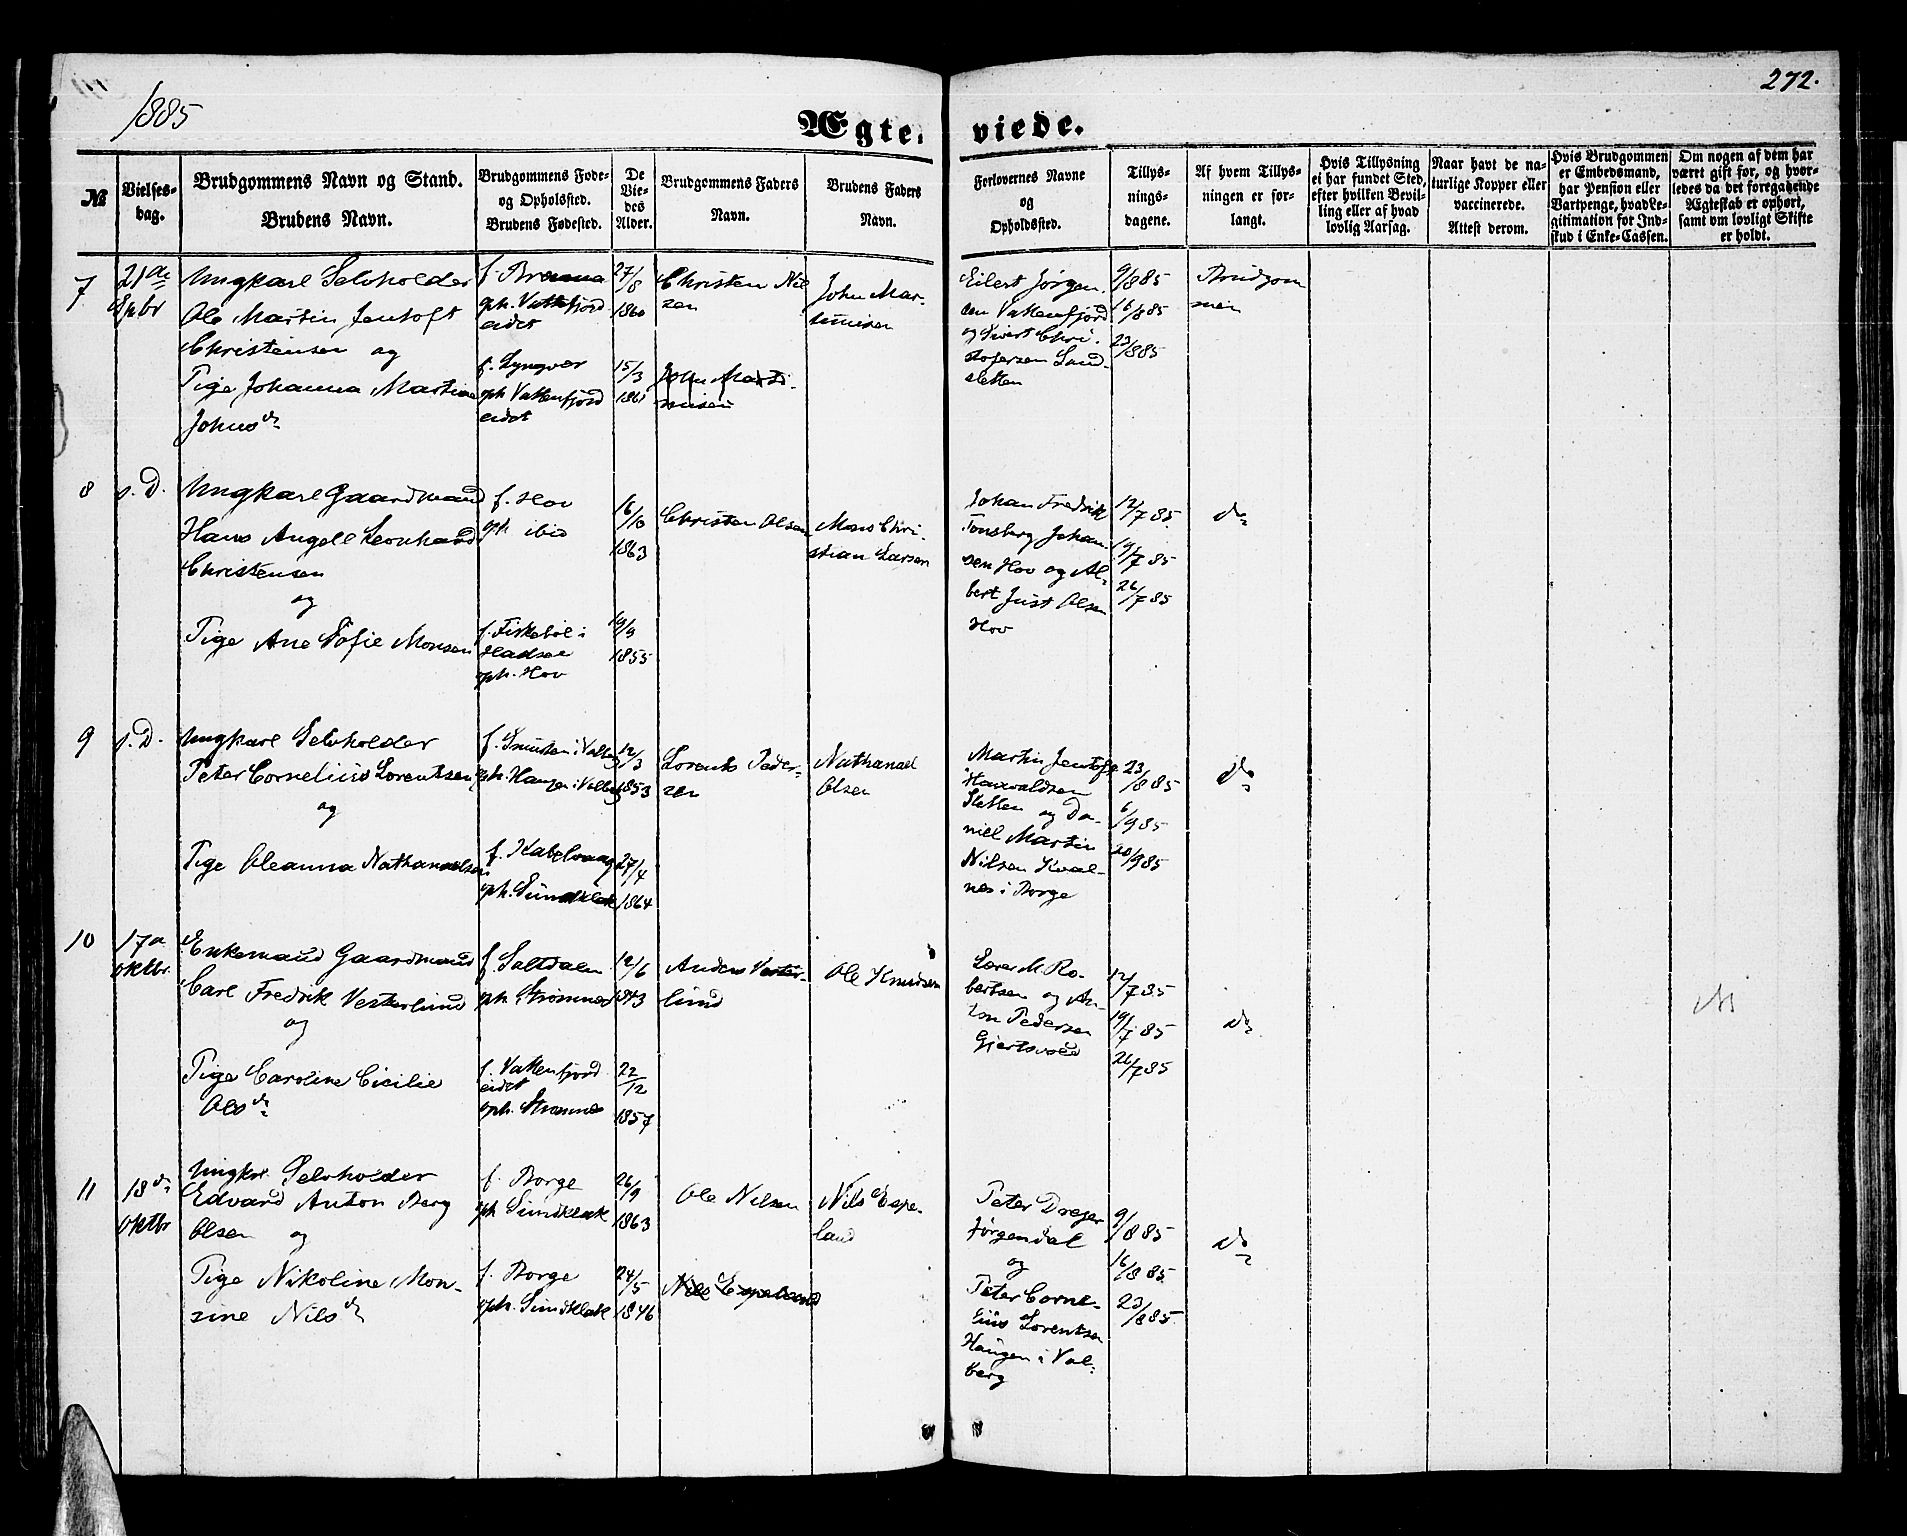 1885
272.
Ægte-
viede.
№
Vielses-
dag.
Brudgommens Navn og Stand.
Brudens Navn.
Brudgommens Føde-
og Opholdsted.
Brudens Fødested.
De
Vie-
des
Alder.
Brudgommens Faders
Navn.
Brudens Faders
Navn.
Forlovernes Navne
og
Opholdssted.
Tillys-
nings-
dagene.
Af hvem Tillys-
ningen er for-
langt.
Hvis Tillysning
ei har fundet Sted,
efter hvilken Bevil-
ling eller af hvad
lovlig Aarsag.
Naar havt de na-
turlige Kopper eller
vaccinerede.
Attest derom.
Hvis Brudgommen
er Embedsmand,
har Pension eller
Vartpenge, hvad Le-
gitimation for Ind-
skud i Enke-Cassen.
Om nogen af dem har
været gift før, og hvor-
ledes da det foregaaende
Ægteskab er ophørt,
samt om lovligt Skifte
er holdt.
7
21de
Spbr
Ungkarl Selvholder
Ole Martin Jentoft
Christensen og
Pige Johanna Martine
Johnsdr
f.
oph. Vatterfjord
eidet
f. Lyngvær
oph Vatterfjord
eidet
27/8
1860
15/3
1861
Christen Niel
sen
John Marti-
niusen
John Mar-
tinusen
Eilert Jørgen.
sen Vatterfjord
og Sivert Chri-
stofersen Sand-
sletten
9/8 85
16/8 85
23/8 85
Brudgom
men
8
s. D.
Ungkarl Gaardmand
Hans Angell Leonhard
Christensen
og
Pige Ane Sofie Monsen
f. Hov
oph ibid
f. Fiskebøl i
Hadsel
oph. Hov
16/10
1863
19/9
1855
Christen Olsen
Mons Chri-
stian Larsen
Johan Fredrik
Tønsberg Johan-
sen Hov og Al-
bert Just Olsen
Hov
12/7 85
19/7 85
26/7 85
do
9
s. D.
Ungkarl Selvholder
Peter Cornelius Lorentsen
og
Pige Oleanna Nathanaelsen
f. i Valberg
oph. Haugen i Valberg
f. Kabelvaag
oph. Sundklak
12/3
1853
27/4
1864
Lorents Peder-
sen
Nathanael
Olsen
Martin Jentoft
Haavaldsen
Sletten og Da-
niel Martin
Nilsen Kval-
nes i Borge
23/8 85
6/9 85
20/9 85
do
10
17de
Oktbr.
Enkemand Gaardmand
Carl Fredrik Vesterlund
og
Pige Caroline Cicilie
Olsdr
f. Saltdalen
oph. Strømnes
f. Vatterfjord
eidet
oph. Strømnes
12/6
1843
22/12
1857
Anders Vester-
lund
Ole Knudsen
Lærer M. Ro-
bertsen og An-
ton Pedersen
12/7 85
19/7 85
26/7 85
do
11
18de
Oktbr
Ungkarl Selvholder
Edvard Anton Berg
Olsen og
Pige Nikoline Mon-
sine Nilsdr
f. Borge
oph Sundklak
f. Borge
oph. Sundklak
26/9
1863
24/5
1846
Ole Nilsen
Nils Espeland
Nils Espe-
land
Peter Dreyer
Jørgendal
og
Peter Corne-
lius Lorentsen
Haugen i Val-
berg
9/8 85
16/8 85
23/8 85
do